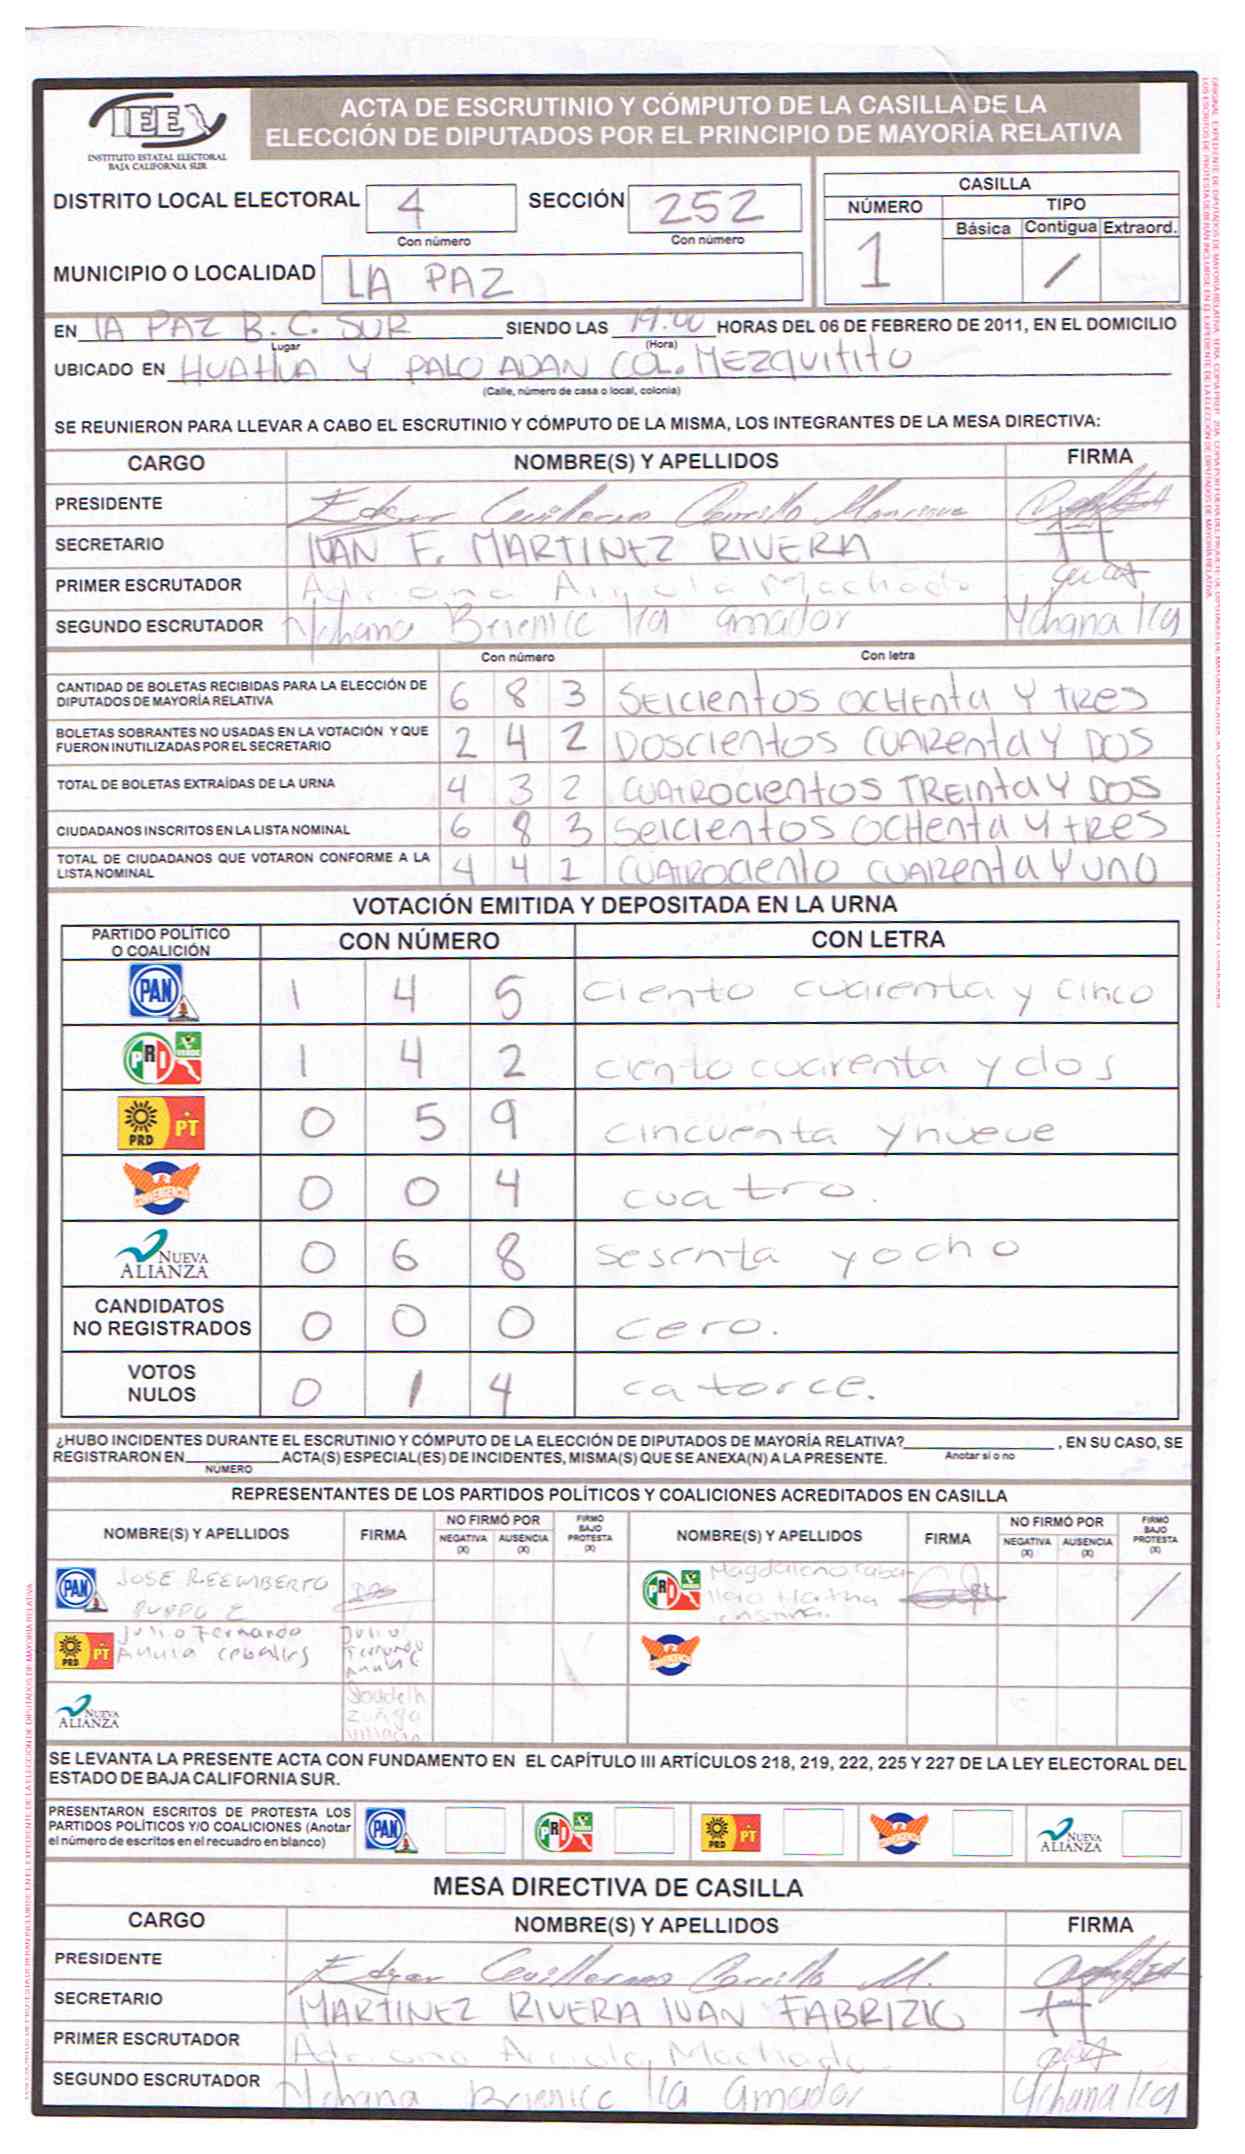 IEE
INSTITUTO ESTATAL ELECTORAL
BAJA CALIFORNIA SUR
ACTA DE ESCRUTINIO Y CÓMPUTO DE LA CASILLA DE LA
ELECCIÓN DE DIPUTADOS POR EL PRINCIPIO DE MAYORÍA RELATIVA
DISTRITO LOCAL ELECTORAL 4 SECCIÓN 252
Con número Con número
CASILLA
NÚMERO TIPO
Básica Contigua Extraord.
1 /
MUNICIPIO O LOCALIDAD LA PAZ
EN LA PAZ B.C. SUR SIENDO LAS 19:00 HORAS DEL 06 DE FEBRERO DE 2011, EN EL DOMICILIO
Lugar (Hora)
UBICADO EN HUATUA Y PALO ADAN COL. MEZQUITITO
(Calle, número de casa o local, colonia)
SE REUNIERON PARA LLEVAR A CABO EL ESCRUTINIO Y CÓMPUTO DE LA MISMA, LOS INTEGRANTES DE LA MESA DIRECTIVA:
CARGO NOMBRE(S) Y APELLIDOS FIRMA
PRESIDENTE Edgar Guillermo Carrillo
SECRETARIO IVAN F. MARTINEZ RIVERA
PRIMER ESCRUTADOR Adriana Arriola Machado
SEGUNDO ESCRUTADOR Yohana Berenice Isa Amador Yohana Isa
Con número Con letra
CANTIDAD DE BOLETAS RECIBIDAS PARA LA ELECCIÓN DE
DIPUTADOS DE MAYORÍA RELATIVA 6 8 3 SEICIENTOS OCHENTA Y TRES
BOLETAS SOBRANTES NO USADAS EN LA VOTACIÓN Y QUE
FUERON INUTILIZADAS POR EL SECRETARIO 2 4 2 DOSCIENTOS CUARENTA Y DOS
TOTAL DE BOLETAS EXTRAÍDAS DE LA URNA 4 3 2 CUATROCIENTOS TREINTA Y DOS
CIUDADANOS INSCRITOS EN LA LISTA NOMINAL 6 8 3 SEICIENTOS OCHENTA Y TRES
TOTAL DE CIUDADANOS QUE VOTARON CONFORME A LA
LISTA NOMINAL 4 4 1 CUATROCIENTO CUARENTA Y UNO
VOTACIÓN EMITIDA Y DEPOSITADA EN LA URNA
PARTIDO POLÍTICO
O COALICIÓN CON NÚMERO CON LETRA
PAN 1 4 5 ciento cuarenta y cinco
PRI VERDE 1 4 2 ciento cuarenta y dos
PRD PT 0 5 9 cincuenta y nueve
CONVERGENCIA 0 0 4 cuatro.
NUEVA ALIANZA 0 6 8 sesenta y ocho
CANDIDATOS
NO REGISTRADOS 0 0 0 cero.
VOTOS
NULOS 0 1 4 catorce.
¿HUBO INCIDENTES DURANTE EL ESCRUTINIO Y CÓMPUTO DE LA ELECCIÓN DE DIPUTADOS DE MAYORÍA RELATIVA? , EN SU CASO, SE
Anotar si o no
REGISTRARON EN ACTA(S) ESPECIAL(ES) DE INCIDENTES, MISMA(S) QUE SE ANEXA(N) A LA PRESENTE.
NÚMERO
REPRESENTANTES DE LOS PARTIDOS POLÍTICOS Y COALICIONES ACREDITADOS EN CASILLA
NOMBRE(S) Y APELLIDOS FIRMA NO FIRMÓ POR NEGATIVA (X) AUSENCIA (X) FIRMÓ BAJO PROTESTA (X) NOMBRE(S) Y APELLIDOS FIRMA NO FIRMÓ POR NEGATIVA (X) AUSENCIA (X) FIRMÓ BAJO PROTESTA (X)
PAN JOSE PRI Magdaleno /
PRD PT Julio Fernando Ceballos Julio Fernando CONVERGENCIA
NUEVA ALIANZA Zuñiga
SE LEVANTA LA PRESENTE ACTA CON FUNDAMENTO EN EL CAPÍTULO III ARTÍCULOS 218, 219, 222, 225 Y 227 DE LA LEY ELECTORAL DEL
ESTADO DE BAJA CALIFORNIA SUR.
PRESENTARON ESCRITOS DE PROTESTA LOS
PARTIDOS POLÍTICOS Y/O COALICIONES (Anotar
el número de escritos en el recuadro en blanco)
PAN PRI PRD PT CONVERGENCIA NUEVA ALIANZA
MESA DIRECTIVA DE CASILLA
CARGO NOMBRE(S) Y APELLIDOS FIRMA
PRESIDENTE Edgar Guillermo Carrillo M.
SECRETARIO MARTINEZ RIVERA IVAN FABRIZIO
PRIMER ESCRUTADOR Adriana Arriola Machado
SEGUNDO ESCRUTADOR Yohana Berenice Isa Amador Yohana Isa